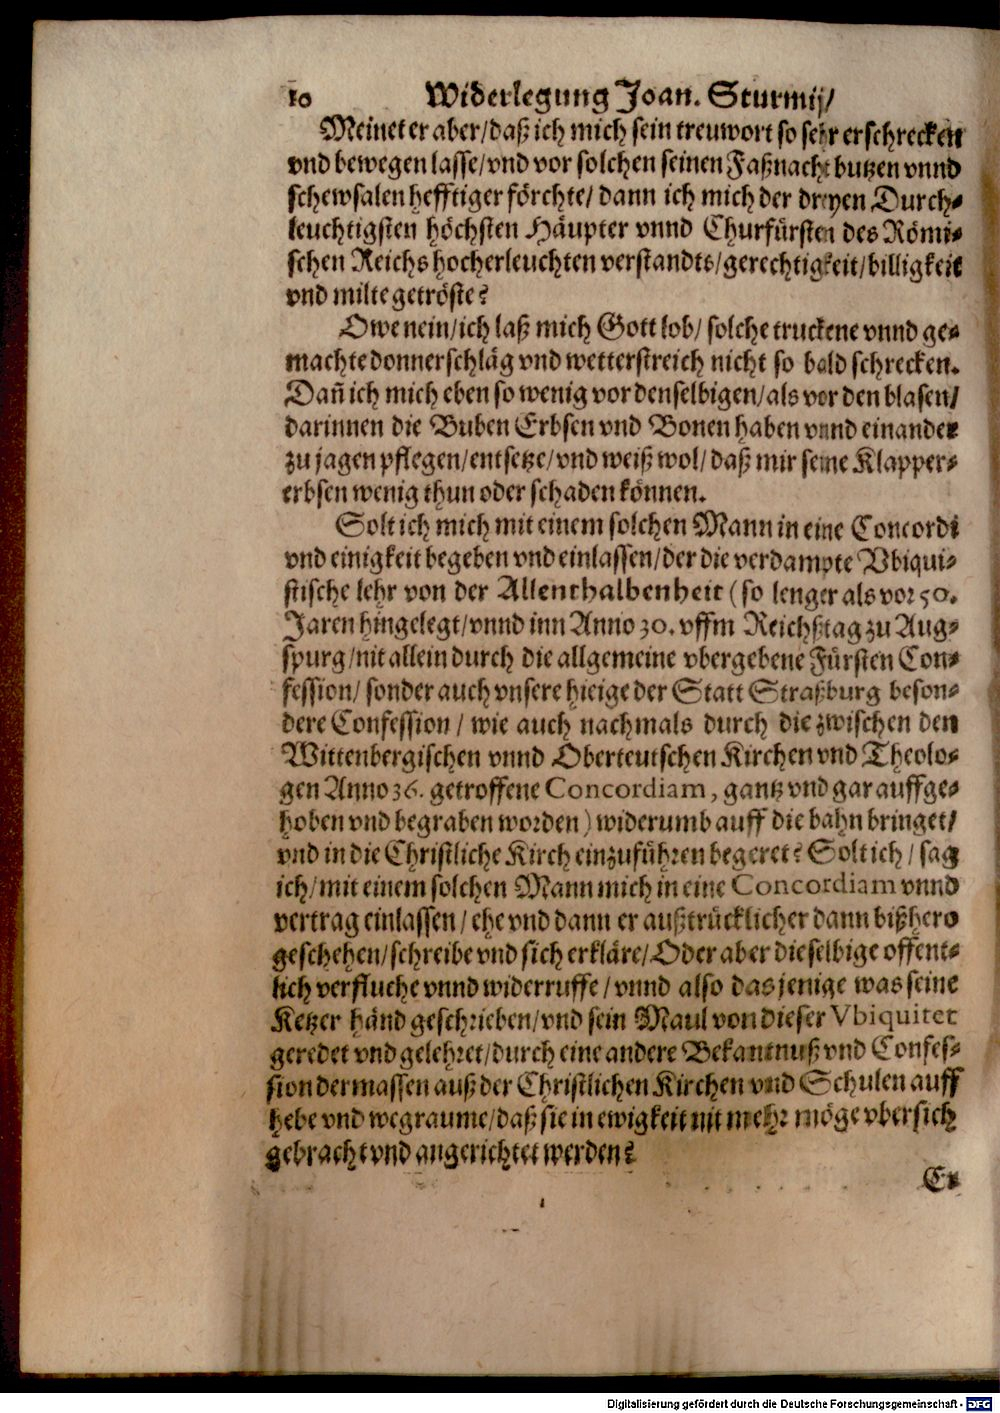 10 Widerlegung Joan. Sturmij/
Meinet er aber/daß ich mich sein treuwort so sehr erschrecken
vnd bewegen lasse/vnd vor solchen seinen Faßnacht butzen vnnd
schewsalen hefftiger förchte/ dann ich mich der dreyen Durch-
leuchtigsten höchsten Häupter vnnd Churfürsten des Römi-
schen Reichs hocherleuchten verstandts/gerechtigkeit/billigkeit
vnd milte getröste?
Owe nein/ich laß mich Gott lob/ solche truckene vnnd ge-
machte donnerschläg vnd wetterstreich nicht so bald schrecken.
Dañ ich mich eben so wenig vor denselbigen/als vor den blasen/
darinnen die Buben Erbsen vnd Bonen haben vnnd einander
zu jagen pflegen/entsetze/vnd weiß wol/daß mir seine Klapper-
erbsen wenig thun oder schaden können.
Solt ich mich mit einem solchen Mann in eine Concordi
vnd einigkeit begeben vnd einlassen/der die verdampte Vbiqui-
stische lehr von der Allenthalbenheit (so lenger als vor 50.
Jaren hingelegt/vnnd inn Anno 30. vffm Reichßtag zu Aug-
spurg/nit allein durch die allgemeine vbergebene Fürsten Con-
fession/ sonder auch vnsere hieige der Statt Straßburg beson-
dere Confession/ wie auch nachmals durch die zwischen den
Wittenbergischen vnnd Oberteutschen Kirchen vnd Theolo-
gen Anno 36. getroffene Concordiam, gantz vnd gar auffge-
hoben vnd begraben worden) widerumb auff die bahn bringet/
vnd in die Christliche Kirch einzuführen begeret? Solt ich/ sag
ich/mit einem solchen Mann mich in eine Concordiam vnnd
vertrag einlassen/ ehe vnd dann er außtrücklicher dann bißhero
geschehen/schreibe vnd sich erkläre/Oder aber dieselbige offent-
lich verfluche vnnd widerruffe/ vnnd also dasjenige was seine
Ketzer händ geschrieben/vnd sein Maul von dieser Vbiquitet
geredet vnd gelehret/durch eine andere Bekantnuß vnd Confes-
sion dermassen auß der Christlichen Kirchen vnd Schulen auff
hebe vnd wegraume/daß sie in ewigkeit nit mehr möge vbersich
gebracht vnd angerichtet werden?
Er
Digitalisierung gefördert durch die Deutsche Forschungsgemeinschaft - DFG